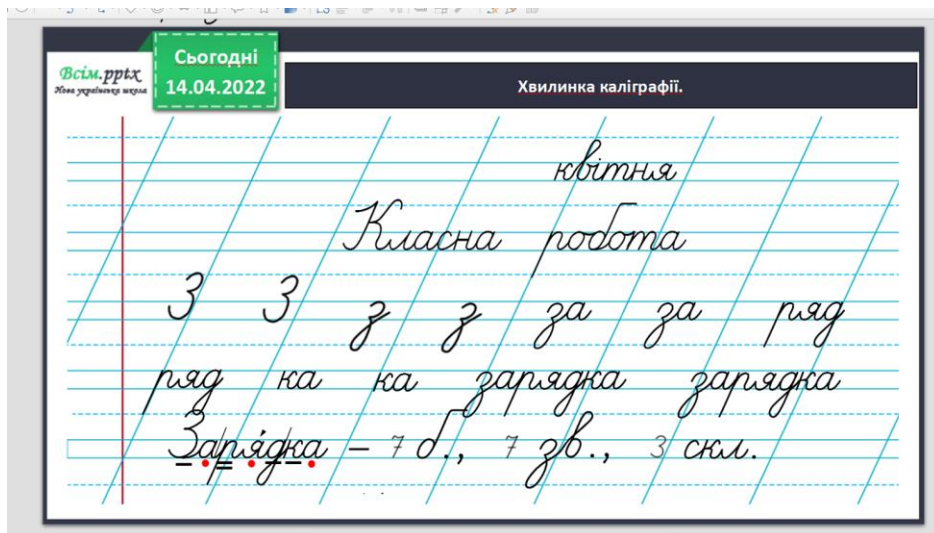 Всім.pptx
Нова українська школа
Сьогодні
14.04.2022
Хвилинка каліграфії.
квітня
Класна робота
З З з з за за ряд
ряд ка ка зарядка зарядка
Заря́дка – 7 б., 7 зв., 3 скл.